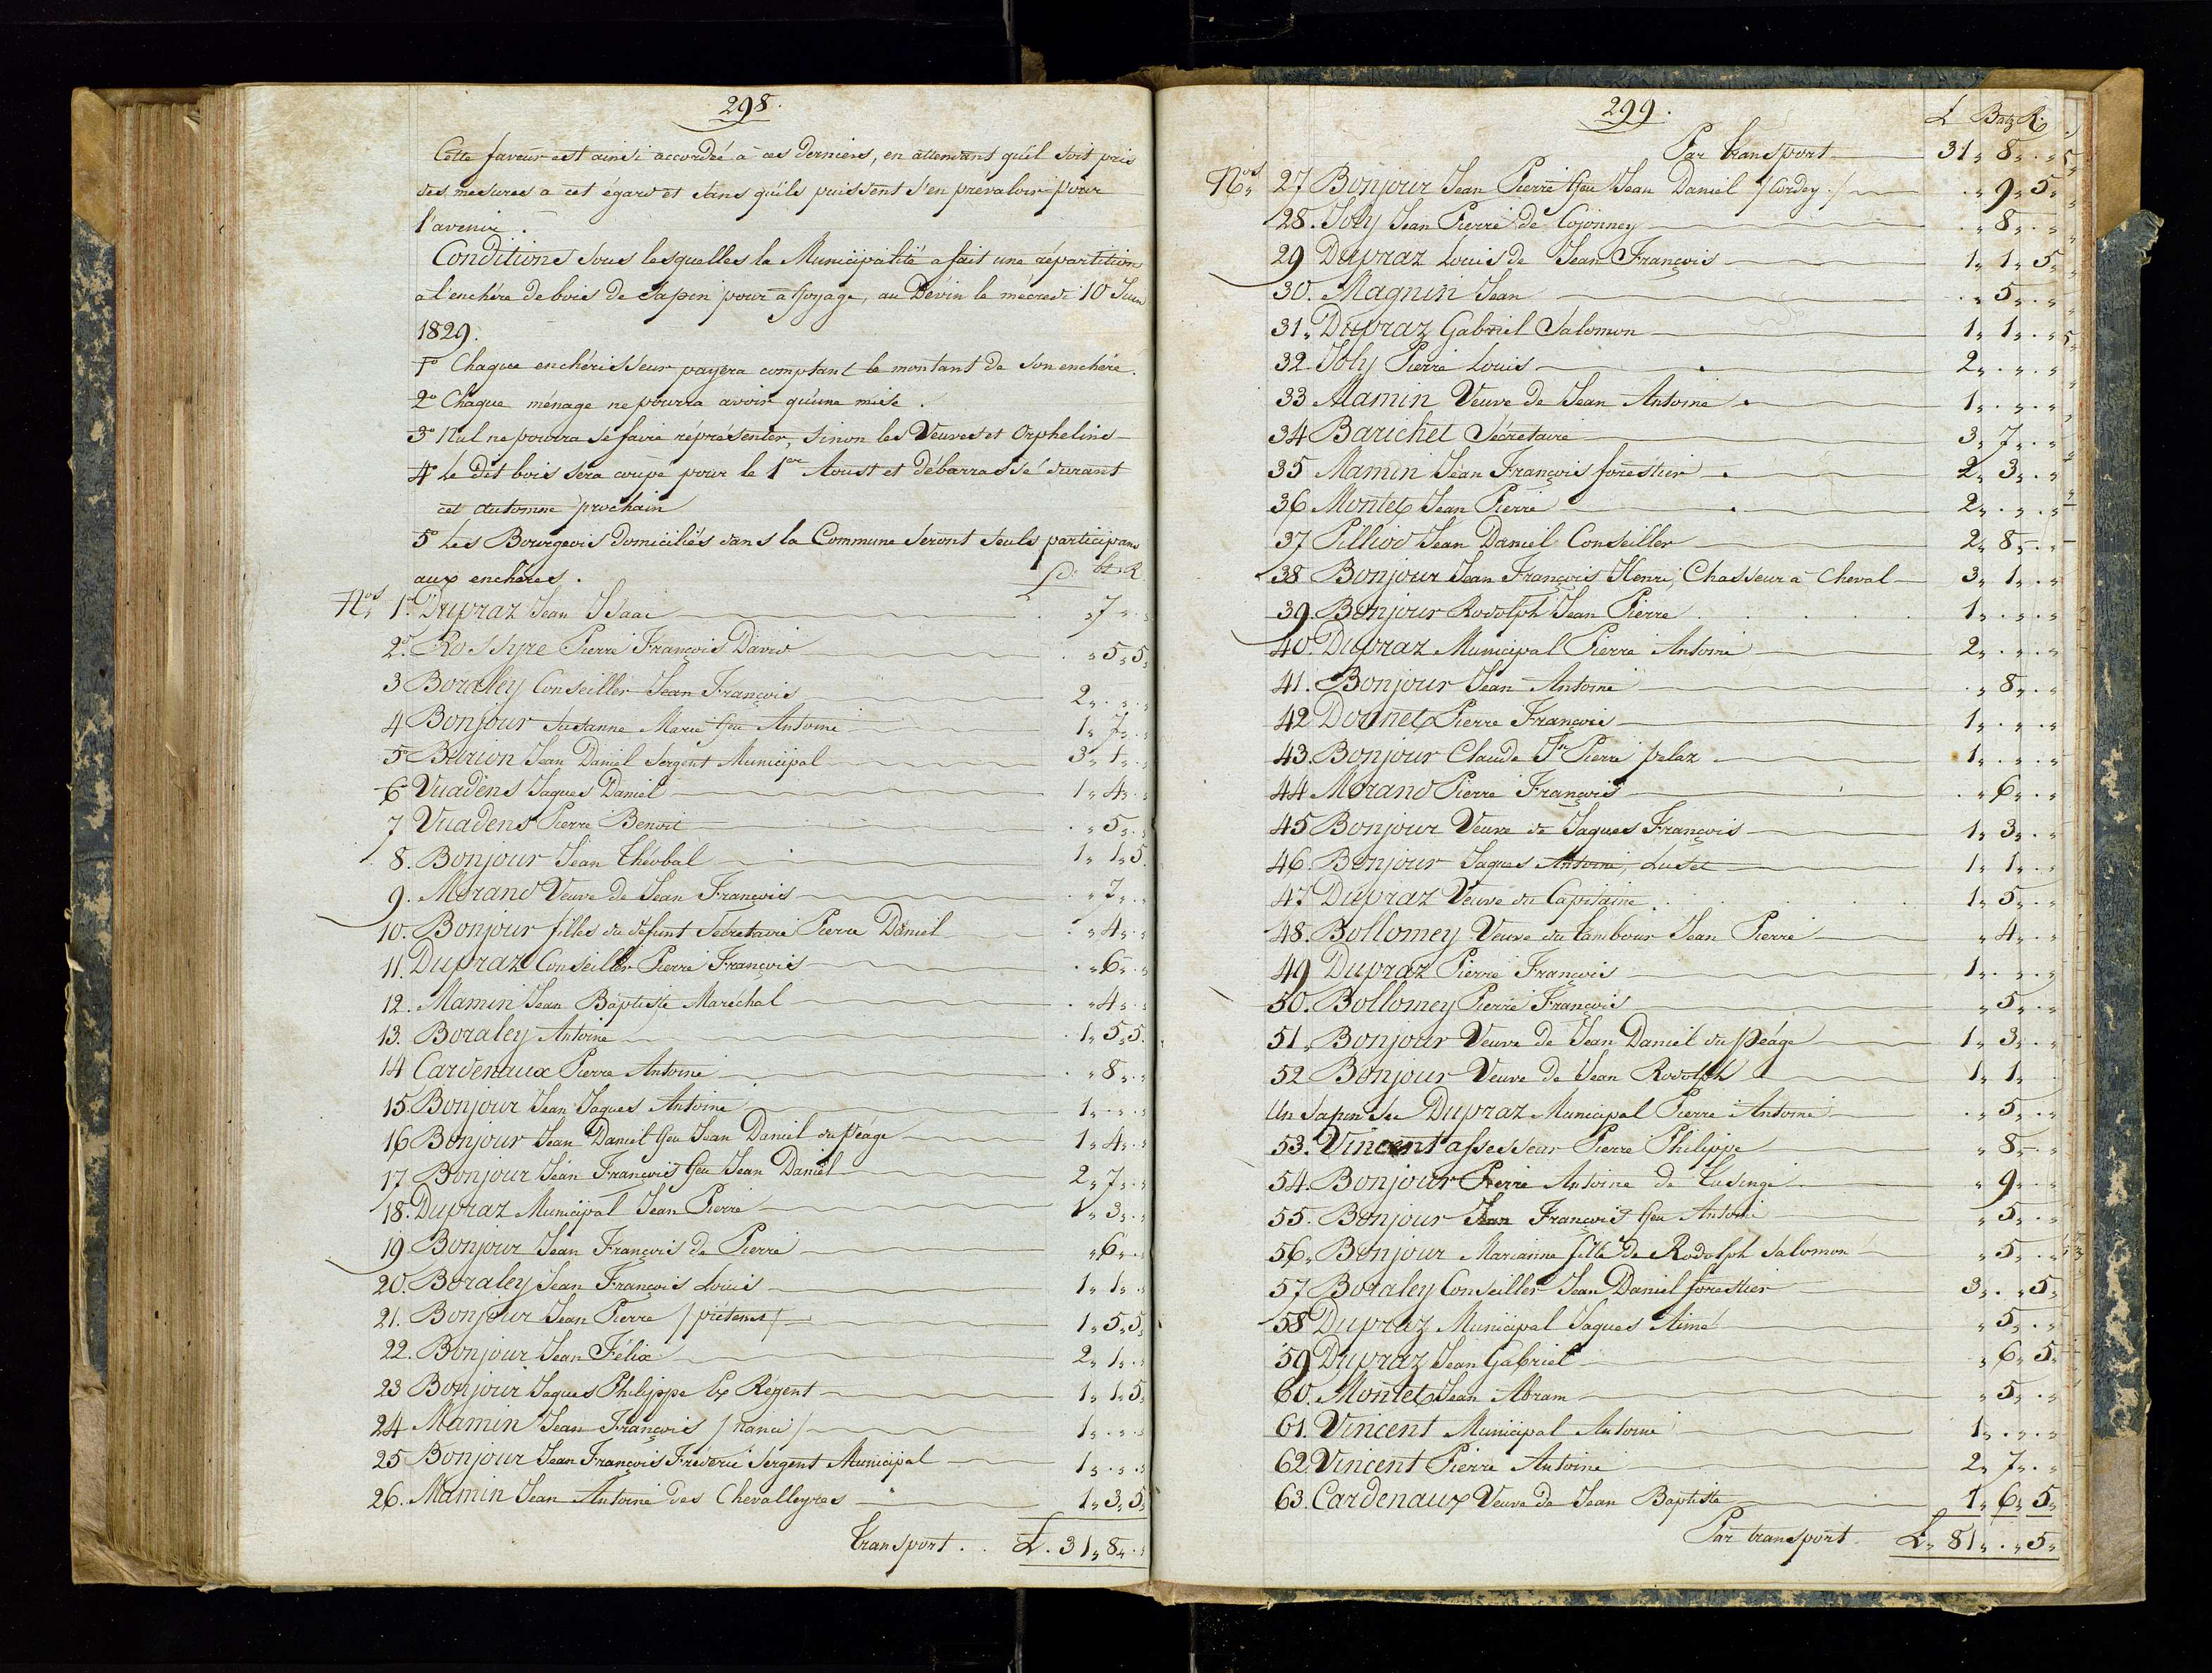 298.
Cette faveur est ainsi accordée à ces derniers, en attendant qu'il soit pris
des mesures a cet égard et sans qu'ils puissent s'en prévaloir pour
l'avenir.
Conditions sous lesquelles la Municipalité a fait une répartition
à l'enchère de bois de sapin pour affoyage, au Devin le mecredi 10 Juin
1829.
1º Chaque enchérisseur payera comptant le montant de son enchère.
2º Chaque ménage ne pourra avoir qu'une mise.
3º Nul ne pourra se faire réprésenter, sinon les Veuves et Orphelins
4º Le dit bois sera coupé pour le 1er Aoust et débarrassé durant
cet automne prochain
5º Les Bourgeois domiciliés dans la Commune seront seuls participans
aux enchères. L. bz. R.
Nos 1º Dupraz Jean Isaac . „ 7 „ .
2º Rossyre Pierre François David . „ 5 „ 5
3 Boraley Conseiller Jean François 2 „ . „ .
4 Bonjour Susanne Marie feu Antoine 1 „ 7 „ .
5 Burion Jean Daniel Sergent Municipal 3 „ 1 „ .
6 Vuadens Jaques Daniel 1 „ 4 „ .
7 Vuadens Pierre Benoit . „ 5 „ .
8. Bonjour Jean Théobal 1 „ 1 „ 5.
9. Morand Veuve de Jean François . „ 7 „ .
10. Bonjour filles du défunt Secretaire Pierre Daniel . „ 4 „ .
11. Dupraz Conseiller Pierre François . „ 6 „ .
12. Mamin Jean Baptiste Maréchal . „ 4 „ .
13. Boraley Antoine 1 „ 5 „ 5.
14 Cardenaux Pierre Antoine . „ 8 „ .
15. Bonjour Jean Jaques Antoine 1 „ . „ .
16 Bonjour Jean Daniel feu Jean Daniel du péage 1 „ 4 „ .
17. Bonjour Jean François feu Jean Daniel 2 „ 7 „ .
18. Dupraz Municipal Jean Pierre 1 „ 3 „ .
19. Bonjour Jean François de Pierre „ 6 „ .
20. Boraley Jean François Louis 1 „ 1 „ .
21. Bonjour Jean Pierre 1 „ 5 „ 5
22. Bonjour Jean Félix 2 „ 1 „ .
23 Bonjour Jaques Philippe Ex Régent 1 „ 1 „ 5
24 Mamin Jean François / Nanci / 1 „ . „ .
25 Bonjour Jean François Fréderic Sergent Municipal 1 „ . „ .
26. Mamin Jean Antoine des Chevalleyres 1 „ 3 „ 5
Transport . . L. 31 „ 8 „ .
299.
L Batz R.
Par transport 31 „ 8 „ . „
Nos 27 Bonjour Jean Pierre feu Jean Daniel / Cordey / . „ 9 „ 5 „
28. Joly Jean Pierre de Cojonney . „ 8 „ . „
29 Dupraz Louis de Jean François 1 „ 1 „ 5 „
30. Magnin Jean . „ 5 „ . „
31 „ Dupraz Gabriel Salomon 1 „ 1 „ . „
32 Joly Pierre Louis 2 „ . „ . „
33 Mamin Veuve de Jean Antoine 1 „ . „ . „
34 Barichet Sécretaire 3 „ 7 „ . „
35 Mamin Jean François forestier 2 „ 3 „ . „
36 Montet Jean Pierre 2 „ . „ . „
37 Pilliod Jean Daniel Conseiller 2 „ 8 „ . „
38 Bonjour Jean François Henri, Chasseur à Cheval 3 „ 1 „ . „
39. Bonjour Rodolph Jean Pierre 1 „ . „ . „
40 Dupraz Municipal Pierre Antoine 2 „ . „ . „
41. Bonjour Jean Antoine . „ 8 „ . „
42 Donnet Pierre François 1 „ . „ . „
43. Bonjour Claude Fs Pierre pelaz 1 „ . „ . „
44 Morand Pierre François . „ 6 „ . „
45 Bonjour Veuve de Jaques François 1 „ 3 „ . „
46. Bonjour Jaques Antoine, 1 „ 1 „ . „
47 Dupraz Veuve du Capitaine 1 „ 5 „ . „
48. Bollomey Veuve du tambour Jean Pierre „ 4 „ . „
49 Dupraz Pierre François 1 „ . „ . „
50. Bollomey Pierre François „ 5 „ . „
51 „ Bonjour Veuve de Jean Daniel du péage 1 „ 3 „ . „
52 Bonjour Veuve de Jean Rodolph 1 „ 1 „ .
Un sapin Sec Dupraz Municipal Pierre Antoine . „ 5 „ . „
53. Vincent assesseur Pierre Philippe „ 8 „ . „
54. Bonjour Pierre Antoine de Tusinge „ 9 „ . „
55. Bonjour Jean François feu Antoine „ 5 „ . „
56 „ Bonjour Marianne fille de Rodolph Salomon „ 5 „ . „
57 Boraley Conseiller Jean Daniel forestier 3 „ . „ 5 „
58 Dupraz Municipal Jaques Aimé „ 5 „ . „
59 Dupraz Jean Gabriel „ 6 „ 5 „
60. Montet Jean Abram „ 5 „ . „
61. Vincent Municipal Antoine 1 „ . „ . „
62. Vincent Pierre Antoine 2 „ 7 „ . „
63. Cardenaux Veuve de Jean Baptiste 1 „ 6 „ 5 „
Par transport L „ 81 „ . „ 5 „